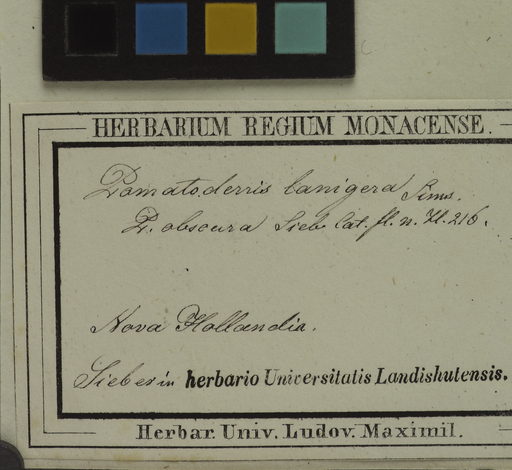 HERBARIUM REGIUM MONACENSE.
Pomatoderris lanigera Sims.
P. obscura Sieb. Cat. fl. n. Hl. 216.
Nova Hollandia.
Sieber in herbario Universitatis Landishutensis.
Herbar. Univ. Ludov. Maximil.